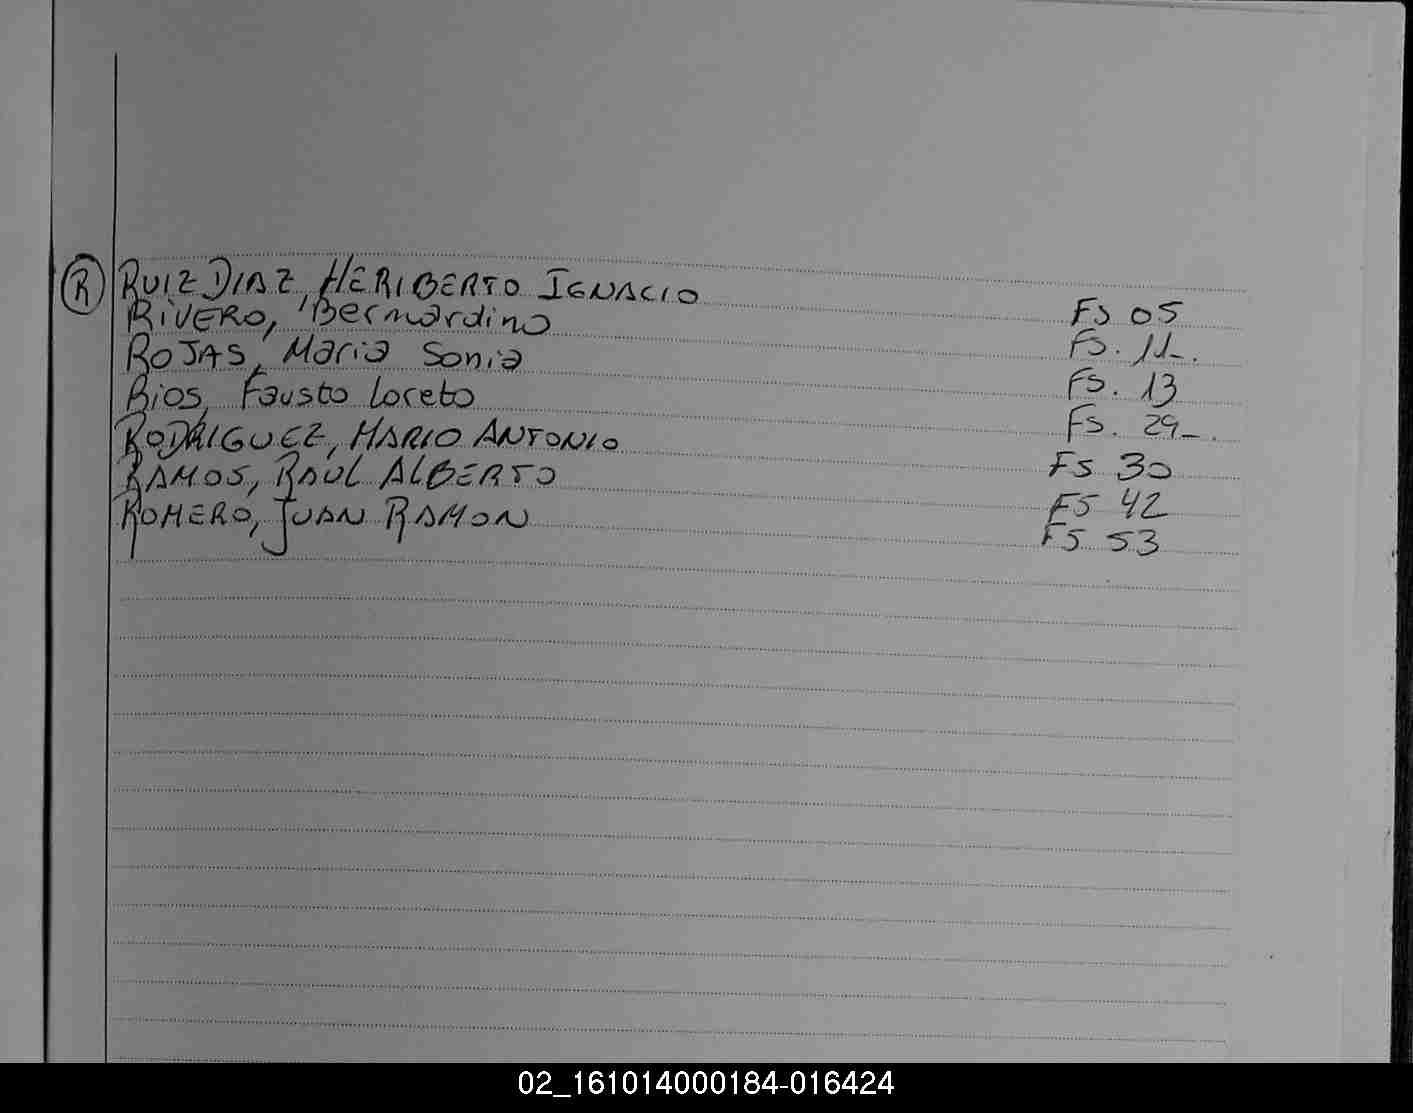 (R) RUIZ DIAZ, HERIBERTO IGNACIO FS 05
RIVERO, Bernardino FS. 11_.
ROJAS, Maria Sonia FS. 13
Rios, Fausto Loreto FS. 29_.
RODRIGUEZ, MARIO ANTONIO FS 30
RAMOS, RAUL ALBERTO FS 42
ROMERO, JUAN RAMON FS 53
02_161014000184-016424